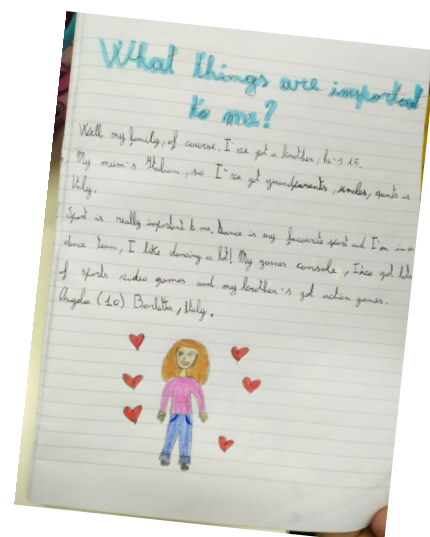 What things are important
to me?
Well my family, of course. I've got a brother, he's 15.
My mum's Italian, so I've got grandparents, uncles, aunts is
Italy.
Sport is really important to me. Dance is my favourite sport and I'm in
dance team, I like dancing a lot! My games console, I've got lots
of sports video games and my brother's got action games.
Angela (10) Barletta, Italy.